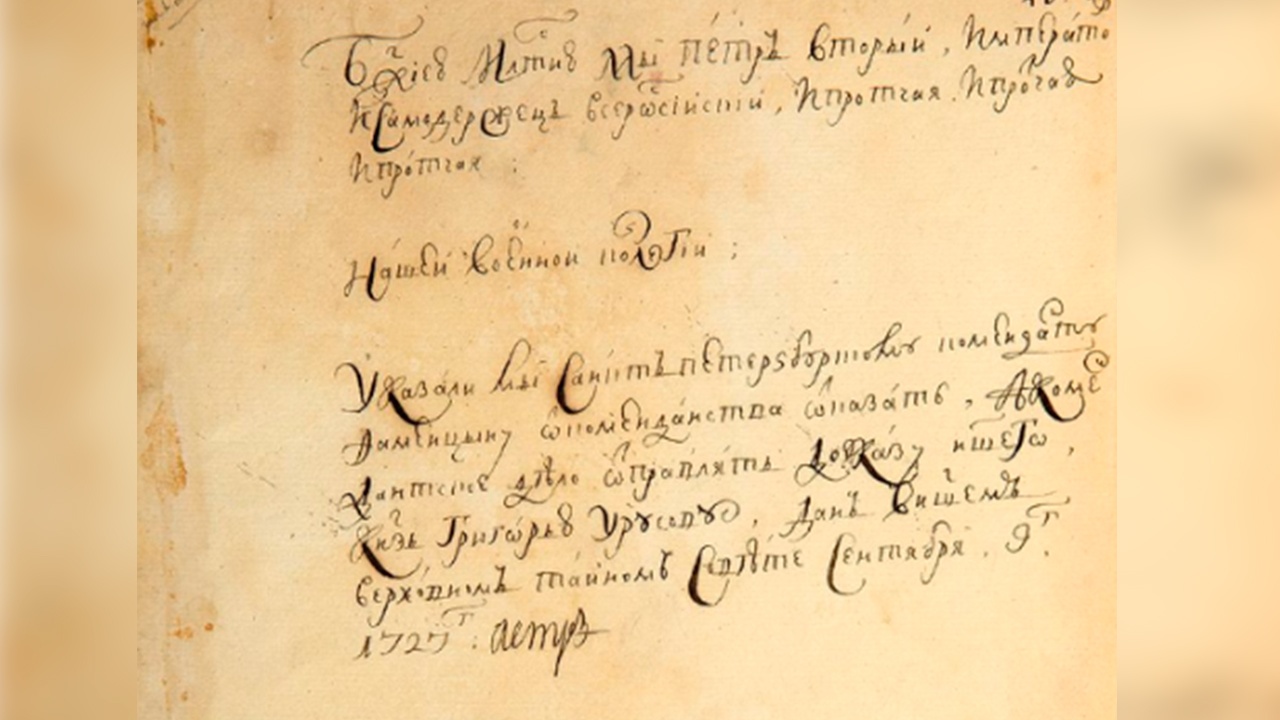 Бж҃iею Млтию Мы Пéтръ вторыи, Императо
И Самодержецъ всерѡсiискiи, И протчая. И прóчая
И протчая:
Нáшеи военнои колегiи;
Указали мы Санктъ петерзбурского комендáнта
ѿ комендáнства ѿказáть, А коме
дантское дѣло ѿправлять до указу нашегѡ,
Кнзь Григóрью Урусову, Данъ в нашемъ
верхóвномъ тáиномъ Совѣте Сентября. 9 г.
1727 г: Петръ